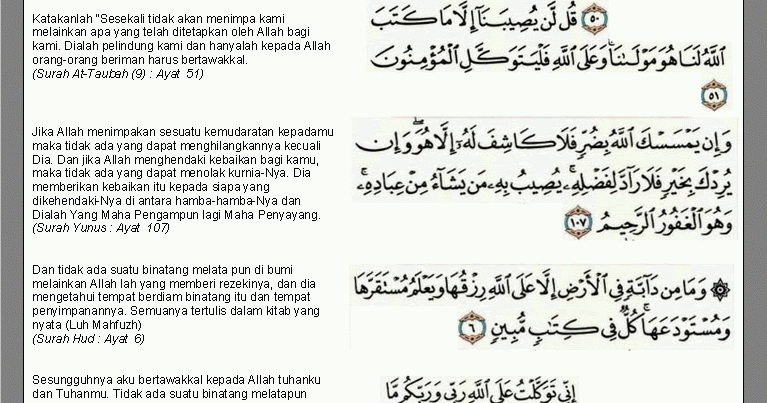 Katakanlah "Sesekali tidak akan menimpa kami
melainkan apa yang telah ditetapkan oleh Allah bagi
kami. Dialah pelindung kami dan hanyalah kepada Allah
orang-orang beriman harus bertawakkal.
(Surah At-Taubah (9) : Ayat 51)
٥٠ قُل لَّن يُصِيبَنَآ إِلَّا مَا كَتَبَ
ٱللَّهُ لَنَا هُوَ مَوْلَىٰنَا ۚ وَعَلَى ٱللَّهِ فَلْيَتَوَكَّلِ ٱلْمُؤْمِنُونَ
٥١
Jika Allah menimpakan sesuatu kemudaratan kepadamu
maka tidak ada yang dapat menghilangkannya kecuali
Dia. Dan jika Allah menghendaki kebaikan bagi kamu,
maka tidak ada yang dapat menolak kurnia-Nya. Dia
memberikan kebaikan itu kepada siapa yang
dikehendaki-Nya di antara hamba-hamba-Nya dan
Dialah Yang Maha Pengampun lagi Maha Penyayang.
(Surah Yunus : Ayat 107)
وَإِن يَمْسَسْكَ ٱللَّهُ بِضُرٍّ فَلَا كَاشِفَ لَهُۥٓ إِلَّا هُوَ ۖ وَإِن
يُرِدْكَ بِخَيْرٍ فَلَا رَآدَّ لِفَضْلِهِۦ ۚ يُصِيبُ بِهِۦ مَن يَشَآءُ مِنْ عِبَادِهِۦ ۚ
وَهُوَ ٱلْغَفُورُ ٱلرَّحِيمُ ١٠٧
Dan tidak ada suatu binatang melata pun di bumi
melainkan Allah lah yang memberi rezekinya, dan dia
mengetahui tempat berdiam binatang itu dan tempat
penyimpanannya. Semuanya tertulis dalam kitab yang
nyata (Luh Mahfuzh)
(Surah Hud : Ayat 6)
۞ وَمَا مِن دَآبَّةٍ فِى ٱلْأَرْضِ إِلَّا عَلَى ٱللَّهِ رِزْقُهَا وَيَعْلَمُ مُسْتَقَرَّهَا
وَمُسْتَوْدَعَهَا ۚ كُلٌّ فِى كِتَٰبٍ مُّبِينٍ ٦
Sesungguhnya aku bertawakkal kepada Allah tuhanku
dan Tuhanmu. Tidak ada suatu binatang melatapun
إِنِّى تَوَكَّلْتُ عَلَى ٱللَّهِ رَبِّى وَرَبِّكُم مَّا